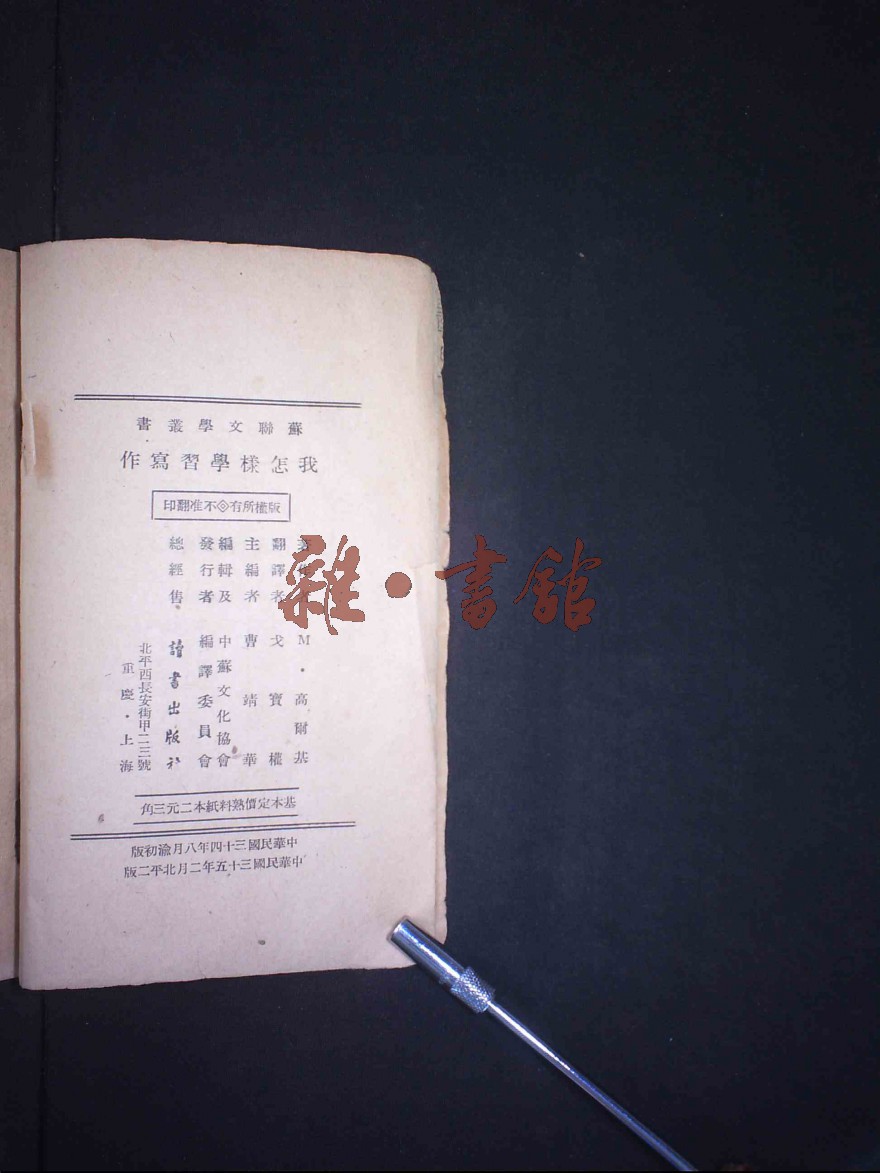 蘇聯文學叢書
我怎樣學習寫作
版權所有◈不准翻印
著作者 M·高爾基
翻譯者 戈寶權
主編者 曹靖華
編輯及發行者 中蘇文化協會編譯委員會
總經售 讀書出版社
北平西長安街甲二三號
重慶·上海
基本定價熟料紙本二元三角
中華民國三十四年八月渝初版
中華民國三十五年二月北平二版
雜·書館